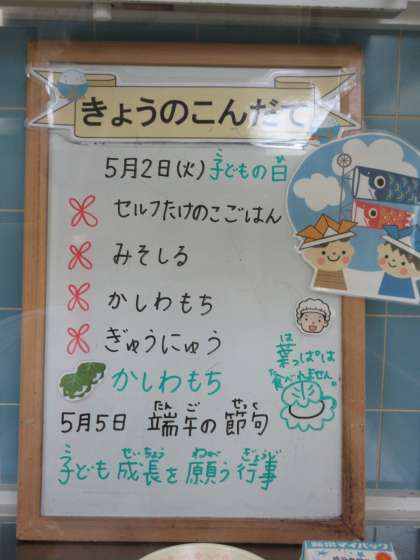 きょうのこんだて
5月2日(火)子どもの日
セルフたけのこごはん
みそしる
かしわもち
ぎゅうにゅう
葉っぱは
食べれません。
かしわもち
5月5日 端午の節句
子ども 成長を 願う 行事